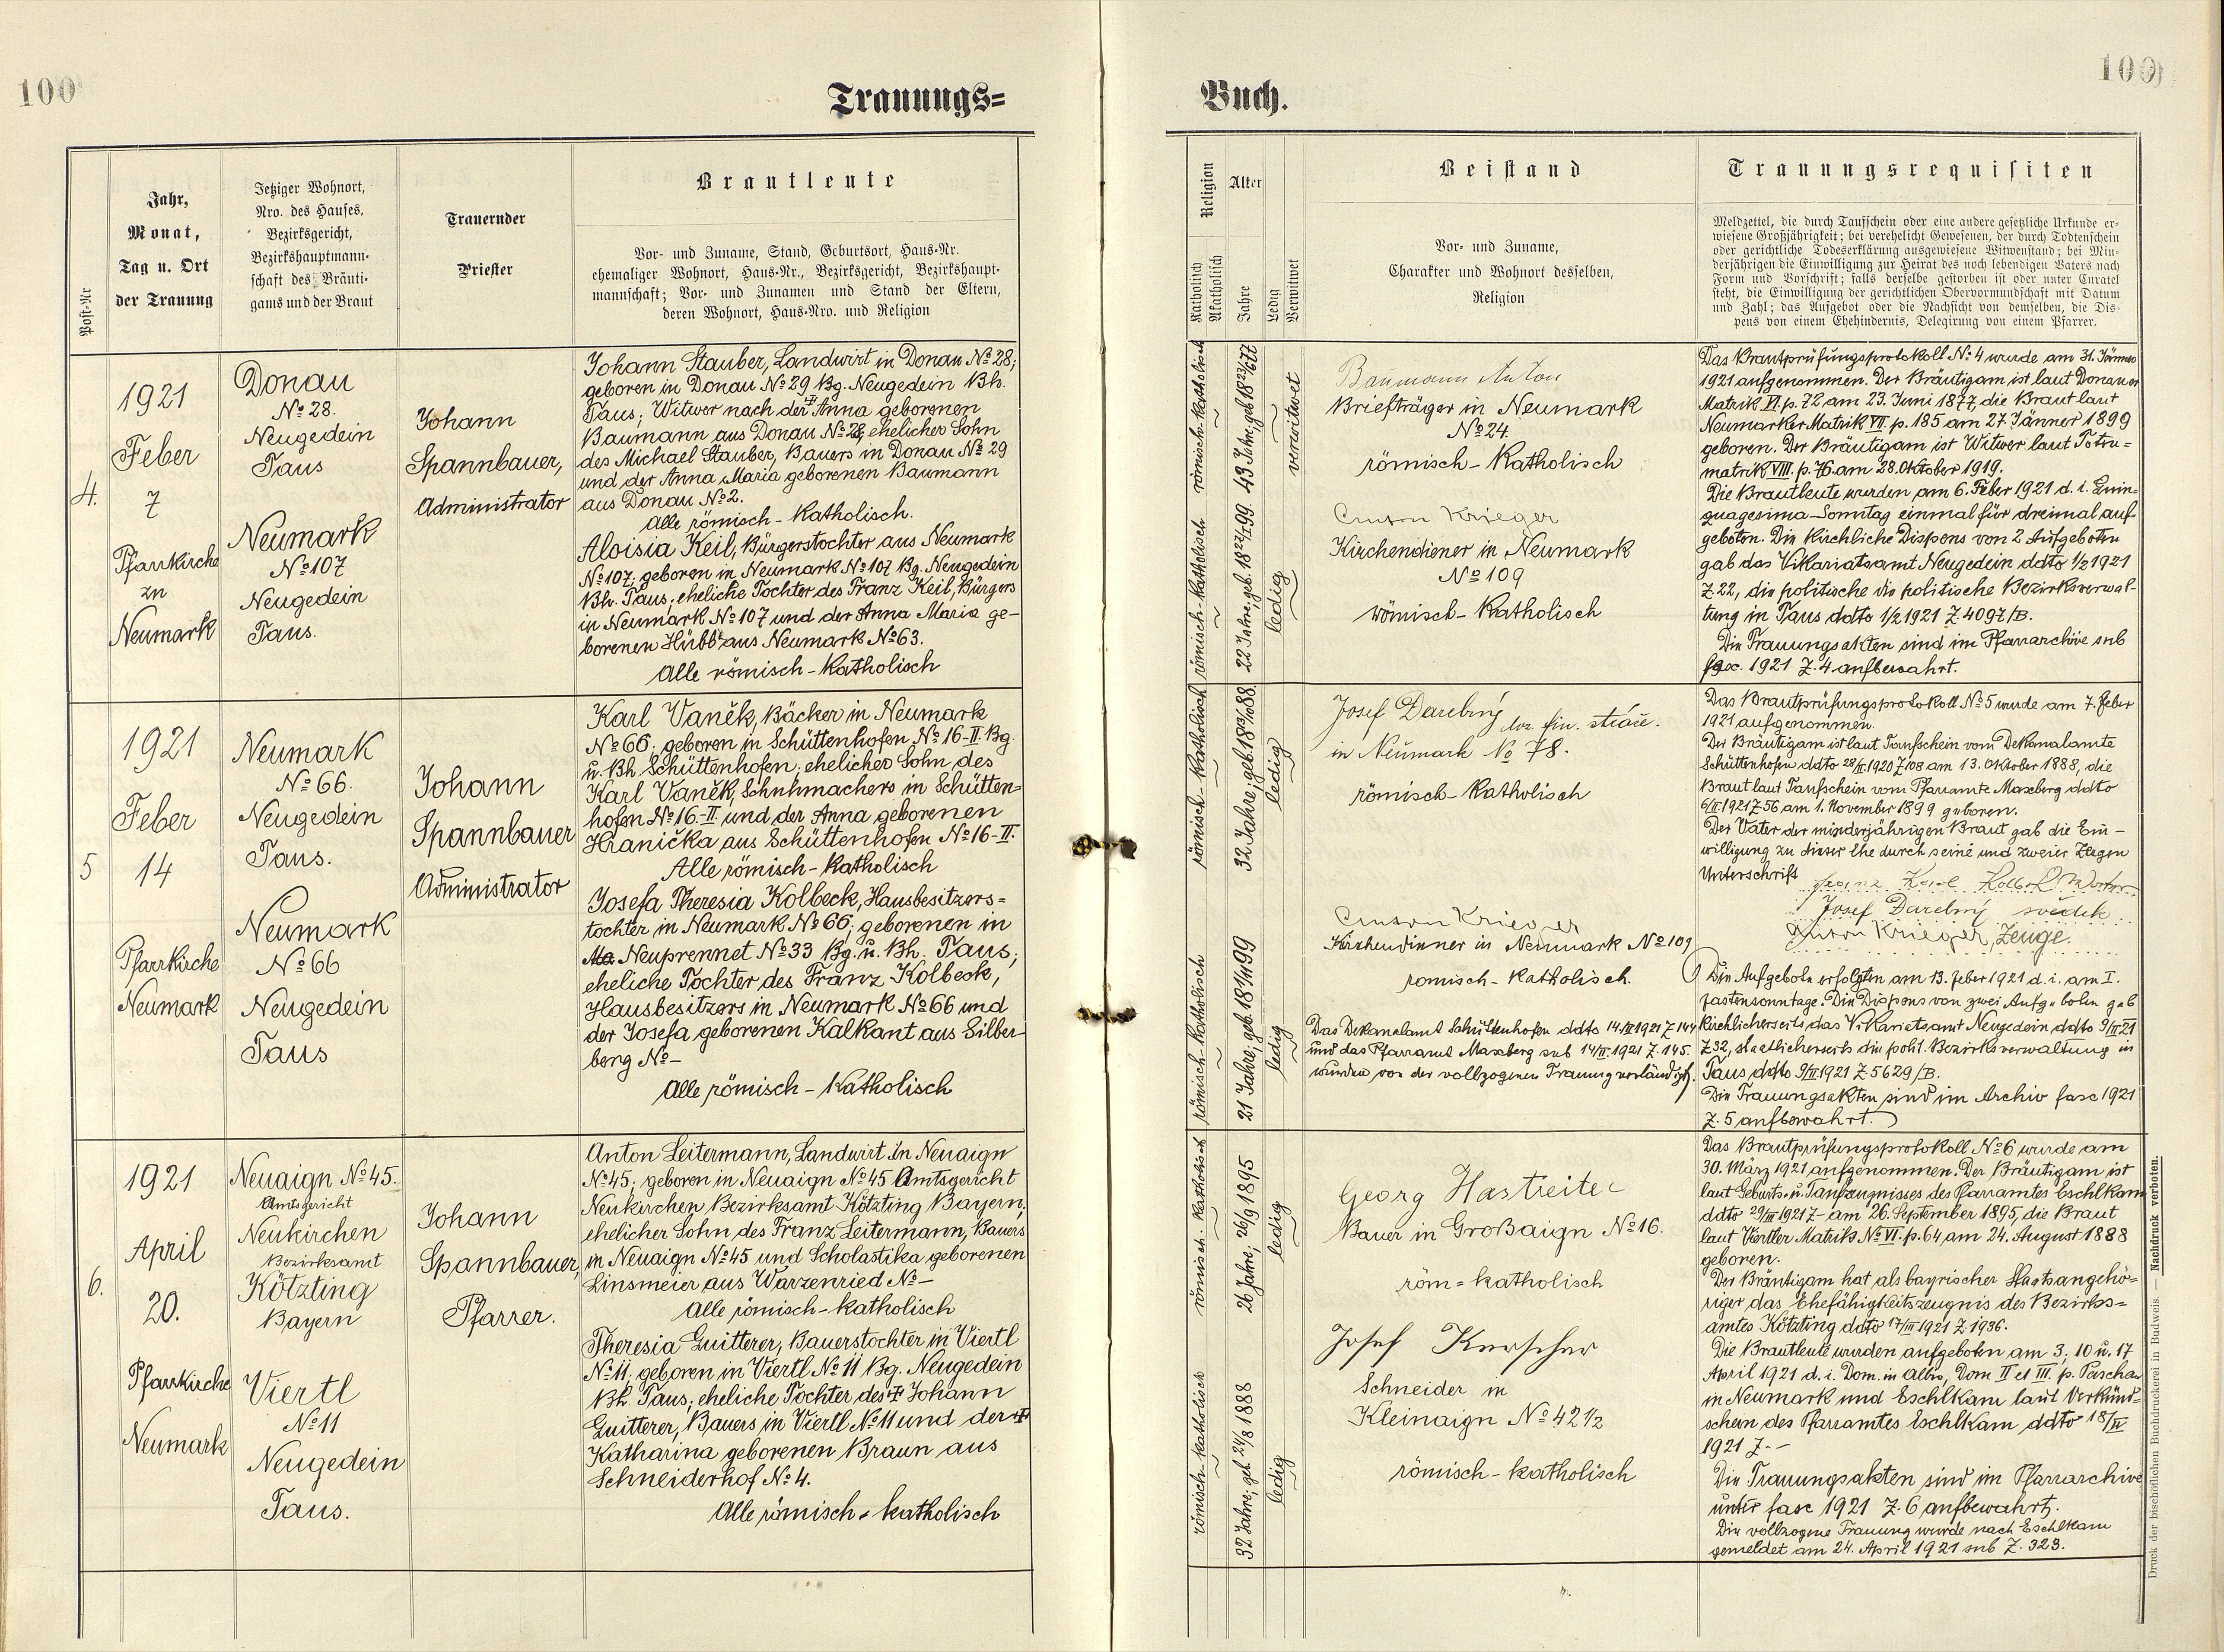 100
Trauungs=
Buch.
100
Post-Nr
Jahr,
Monat,
Tag u. Ort
der Trauung
Jetziger Wohnort,
Nro. des Hauses,
Bezirksgericht,
Bezirkshauptmann-
schaft des Bräuti-
gams und der Braut
Trauernder
Priester
Brautleute
Vor- und Zuname, Stand, Geburtsort, Haus-Nr.
ehemaliger Wohnort, Haus-Nr., Bezirksgericht, Bezirkshaupt-
mannschaft; Vor- und Zunamen und Stand der Eltern,
deren Wohnort, Haus-Nro. und Religion
Religion
Katholisch
Akatholisch
Alter
Jahre
Ledig
Verwitwet
Beistand
Vor- und Zuname,
Charakter und Wohnort desselben,
Religion
Trauungsrequisiten
Meldzettel, die durch Taufschein oder eine andere gesetzliche Urkunde er-
wiesene Großjährigkeit; bei verehelicht Gewesenen, der durch Todtenschein
oder gerichtliche Todeserklärung ausgewiesene Witwenstand; bei Min-
derjährigen die Einwilligung zur Heirat des noch lebendigen Vaters nach
Form und Vorschrift; falls derselbe gestorben ist oder unter Curatel
steht, die Einwilligung der gerichtlichen Obervormundschaft mit Datum
und Zahl; das Aufgebot oder die Nachsicht von demselben, die Dis-
pens von einem Ehehindernis, Delegirung von einem Pfarrer.
4.
1921
Feber
7
Pfarrkirche
zu
Neumark
Donau
No 28.
Neugedein
Taus
Neumark
No 107
Neugedein
Taus.
Johann
Spannbauer,
Administrator
Johann Stauber, Landwirt in Donau No 28;
geboren in Donau No 29 Bg. Neugedein Bh.
Taus; Witwer nach der † Anna geborenen
Baumann aus Donau No 28; ehelicher Sohn
des Michael Stauber, Bauers in Donau No 29
und der Anna Maria geborenen Baumann
aus Donau No 2.
Alle römisch-katholisch.
Aloisia Keil, Bürgerstochter aus Neumark
No 107; geboren in Neumark No 107 Bg. Neugedein
Bh. Taus; eheliche Tochter des Franz Keil, Bürgers
in Neumark No 107 und der Anna Maria ge-
borenen Hübl aus Neumark No 63.
Alle römisch-katholisch
römisch-katholisch
43 Jahre, geb. 18 23/6 77
verwitwet
römisch-katholisch
22 Jahre; geb. 18 27/1 99.
ledig
Baumann Anton
Briefträger in Neumark
No 24.
römisch-katholisch
Anton Krieger
Kirchendiener in Neumark
No 109
römisch-katholisch
Das Brautprüfungsprotokoll No 4 wurde am 31. Jänner
1921 aufgenommen. Der Bräutigam ist laut Donauer
Matrik VI. p. 72 am 23. Juni 1877, die Braut laut
Neumarker Matrik VII. p. 185 am 27. Jänner 1899
geboren. Der Bräutigam ist Witwer laut Toten-
matrik VIII. p. 76 am 28. Oktober 1919.
Die Brautleute wurden am 6. Feber 1921 d. i. Quin-
quagesima-Sonntag einmal für dreimal auf-
geboten. Die kirchliche Dispens von 2 Aufgeboten
gab das Vikariatsamt Neugedein ddto 1/2 1921
Z. 22, die politische die politische Bezirksverwal-
tung in Taus ddto 1/2 1921 Z. 4097/B.
Die Trauungsakten sind im Pfarrarchive sub
fasc. 1921 Z. 4 aufbewahrt.
5
1921
Feber
14
Pfarrkirche
Neumark
Neumark
No 66.
Neugedein
Taus.
Neumark
No 66
Neugedein
Taus
Johann
Spannbauer
Administrator
Karl Vaněk, Bäcker in Neumark
No 66; geboren in Schüttenhofen No 16-II. Bg.
u. Bh. Schüttenhofen; ehelicher Sohn des
Karl Vaněk, Schuhmachers in Schütten-
hofen No 16.-II. und der Anna geborenen
Hranička aus Schüttenhofen No 16-II.
Alle römisch-katholisch
Josefa Theresia Kolbeck, Hausbesitzers=
tochter in Neumark No 66; geborenen in
Neuprennet No 33 Bg. u. Bh. Taus;
eheliche Tochter des Franz Kolbeck,
Hausbesitzers in Neumark No 66 und
der Josefa geborenen Kalkant aus Silber-
berg No –
Alle römisch-katholisch
römisch-katholisch
32 Jahre; geb. 18 13/10 88.
ledig
römisch-katholisch
21 Jahre; geb. 18 1/11 99
ledig
Josef Darebný fin.
in Neumark No 78.
römisch-katholisch
Anton Krieger
Kirchendiener in Neumark No 109
römisch-katholisch.
Das Dekanalamt Schüttenhofen ddto 14/II 1921 Z 144
und das Pfarramt Maxberg sub 14/II. 1921 Z. 145.
wurden von der vollzogenen Trauung verständigt.
Das Brautprüfungsprotokoll No 5 wurde am 7. Feber
1921 aufgenommen.
Der Bräutigam ist laut Taufschein vom Dekanalamte
Schüttenhofen ddto 28/II 1920 Z 108 am 13. Oktober 1888, die
Braut laut Taufschein vom Pfarramte Maxberg ddto
6/II. 1921 Z 56 am 1. November 1899 geboren.
Der Vater der minderjährigen Braut gab die Ein-
willigung zu dieser Ehe durch seine und zweier Zeugen
Unterschrift
Josef Darebný svědek
Anton Krieger, Zeuge.
Die Aufgebote erfolgten am 13. Feber 1921 d. i. am I.
Fastensonntage. Die Dispens von zwei Aufgeboten gab
kirchlicherseits das Vikariatsamt Neugedein ddto 9/II 21
Z 32, staatlicherseits die polit. Bezirksverwaltung in
Taus ddto 9/II 1921 Z 5629/B.
Die Trauungsakten sind im Archiv fasc 1921
Z. 5 aufbewahrt.
6.
1921
April
20.
Pfarrkirche
Neumark
Neuaign No 45.
Amtsgericht
Neukirchen
Bezirksamt
Kötzting
Bayern
Viertl
No 11
Neugedein
Taus.
Johann
Spannbauer,
Pfarrer.
Anton Leitermann, Landwirt in Neuaign
No 45; geboren in Neuaign No 45 Amtsgericht
Neukirchen Bezirksamt Kötzting Bayern;
ehelicher Sohn des Franz Leitermann, Bauers
in Neuaign No 45 und Scholastika geborenen
Linsmeier aus Warzenried No –
Alle römisch-katholisch
Theresia Guitterer, Bauerstochter in Viertl
No 11; geboren in Viertl No 11 Bg. Neugedein
Bh. Taus; eheliche Tochter des † Johann
Guitterer, Bauers in Viertl No 11 und der †
Katharina geborenen Braun aus
Schneiderhof No 4.
Alle römisch-katholisch
römisch-katholisch
26 Jahre, 26/9 1895
ledig
römisch-katholisch
32 Jahre; geb 24/8 1888
ledig
Georg Hastreiter
Bauer in Großaign No 16.
röm=katholisch
Josef Kerscher
Schneider in
Kleinaign No 42 1/2
römisch-katholisch
Das Brautprüfungsprotokoll No 6 wurde am
30. März 1921 aufgenommen. Der Bräutigam ist
laut Geburts- u. Taufzeugnisses des Pfarramtes Eschlkam
ddto 29/III 1921 Z – am 26. September 1895, die Braut
laut Viertler Matrik No VI. p. 64 am 24. August 1888
geboren.
Der Bräutigam hat als bayrischer Staatsangehö-
riger das Ehefähigkeitszeugnis des Bezirks=
amtes Kötzting ddto 17/III 1921 Z 1936.
Die Brautleute wurden aufgeboten am 3., 10 u. 17
April 1921 d. i. Dom. in Albis, Dom II et III. p. Pascha
in Neumark und Eschlkam laut Verkünd-
schein des Pfarramtes Eschlkam ddto 18/IV
1921 Z. –
Die Trauungsakten sind im Pfarrarchive
unter fasc 1921 Z. 6 aufbewahrt.
Die vollzogene Trauung wurde nach Eschlkam
gemeldet am 24. April 1921 sub Z. 323.
Druck der bischöflichen Buchdruckerei in Budweis. — Nachdruck verboten.